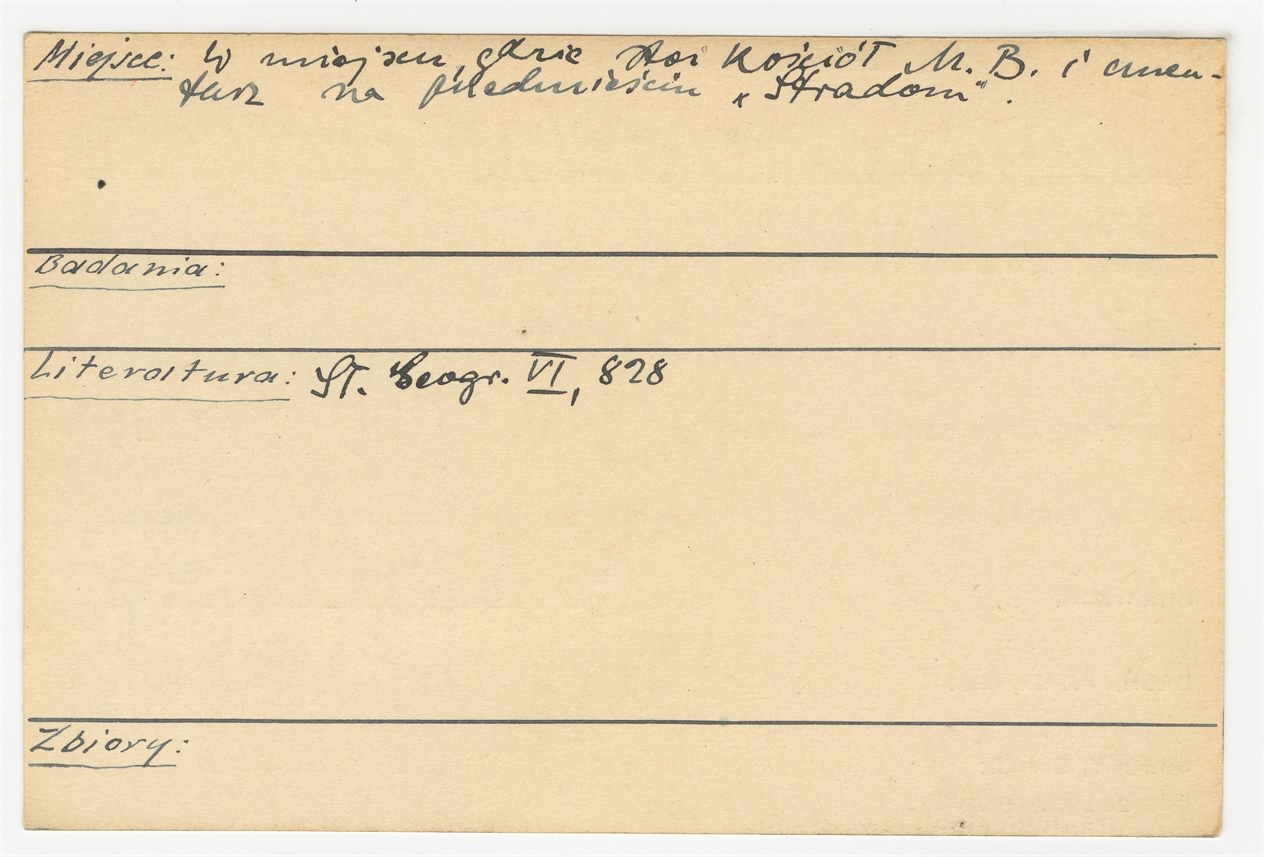 Miejsce: W miejscu, gdzie stoi Kościół M. B. i cmen-
tarz na przedmieściu „Stradom".
Badania:
Literatura: Sł. Geogr. VI, 828
Zbiory: